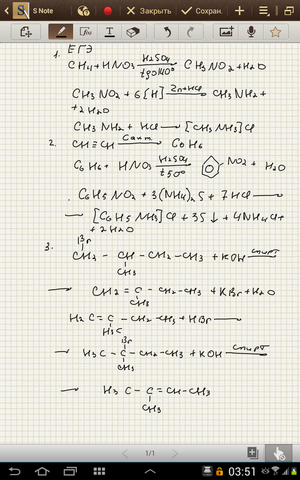 S Note
Закрыть
Сохран.
1. ЕГЭ
CH4 + HNO3 H2SO4 t до 140° CH3NO2 + H2O
CH3NO2 + 6[H] Zn+HCl CH3NH2 +
+ 2H2O
CH3NH2 + HCl → [CH3NH3]Cl
2. CH≡CH Cакт C6H6
C6H6 + HNO3 H2SO4 t 50° NO2 + H2O
C6H5NO2 + 3(NH4)2S + 7HCl →
→ [C6H5NH3]Cl + 3S↓ + 6NH4Cl +
+ 2H2O
3. Br
CH2 – CH – CH2 – CH3 + KOH спирт
CH3
→ CH2 = C – CH2 – CH3 + KBr + H2O
CH3
H2C = C – CH2 – CH3 + HBr →
H3C
Br
→ H3C – C – CH2 – CH3 + KOH спирт
CH3
→ H3C – C = CH – CH3
CH3
1/1
03:51